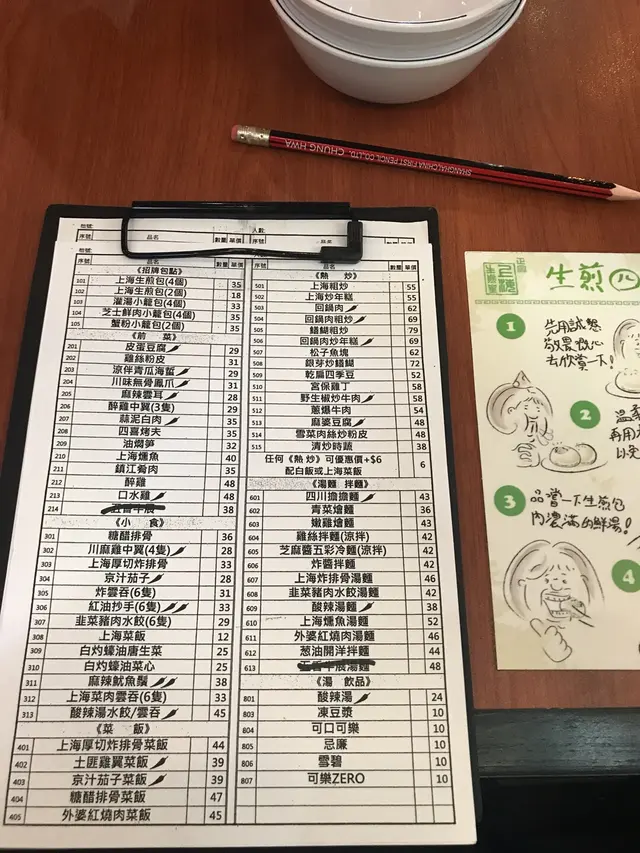 CHUNG HWA
SHANGHAI, CHINA FIRST PENCIL CO., LTD.
枱號:
人數
序號 品名 數量 單價
序號 品名 數量 單價
枱號:
序號 品名 數量 單價
《招牌包點》
101 上海生煎包(4個) 35
102 上海生煎包(2個) 18
103 灌湯小籠包(4個) 33
104 芝士鮮肉小籠包(4個) 35
105 蟹粉小籠包(2個) 35
《前 菜》
201 皮蛋豆腐 29
202 雞絲粉皮 31
203 涼伴青瓜海蜇 29
204 川味無骨鳳爪 31
205 麻辣雲耳 28
206 醉雞中翼(3隻) 29
207 蒜泥白肉 35
208 四喜烤夫 35
209 油燜笋 32
210 上海燻魚 40
211 鎮江肴肉 35
212 醉雞 48
213 口水雞 48
214 五香牛腱 38
《小 食》
301 糖醋排骨 36
302 川麻雞中翼(4隻) 28
303 上海厚切炸排骨 33
304 京汁茄子 28
305 炸雲吞(6隻) 31
306 紅油抄手(6隻) 33
307 韭菜豬肉水餃(6隻) 29
308 上海菜飯 12
309 白灼蠔油唐生菜 25
310 白灼蠔油菜心 25
311 麻辣魷魚鬚 38
312 上海菜肉雲吞(6隻) 33
313 酸辣湯水餃/雲吞 45
《菜 飯》
401 上海厚切炸排骨菜飯 44
402 土匪雞翼菜飯 39
403 京汁茄子菜飯 39
404 糖醋排骨菜飯 47
405 外婆紅燒肉菜飯 45
《熱 炒》
501 上海粗炒 55
502 上海炒年糕 55
503 回鍋肉 62
504 回鍋肉粗炒 69
505 鱔糊粗炒 79
506 回鍋肉炒年糕 69
507 松子魚塊 62
508 銀芽炒鱔糊 72
509 乾扁四季豆 52
510 宮保雞丁 58
511 野生椒炒牛肉 58
512 蔥爆牛肉 54
513 麻婆豆腐 48
514 雪菜肉絲炒粉皮 48
515 清炒時蔬 38
任何《熱 炒》可優惠價+$6
配白飯或上海菜飯 6
《湯麵 拌麵》
601 四川擔擔麵 43
602 青菜燴麵 36
603 嫩雞燴麵 43
604 雞絲拌麵(涼拌) 42
605 芝麻醬五彩冷麵(涼拌) 42
606 炸醬拌麵 42
607 上海炸排骨湯麵 46
608 韭菜豬肉水餃湯麵 42
609 酸辣湯麵 38
610 上海燻魚湯麵 52
611 外婆紅燒肉湯麵 46
612 葱油開洋拌麵 44
613 五香牛腱湯麵 48
《湯 飲品》
801 酸辣湯 24
803 凍豆漿 10
804 可口可樂 10
805 忌廉 10
806 雪碧 10
807 可樂ZERO 10
生煎
1
先用誠懇
敬畏嘅心
去欣賞一下!
2
3
品嘗一下生煎包
內濃滿的鮮湯!
4